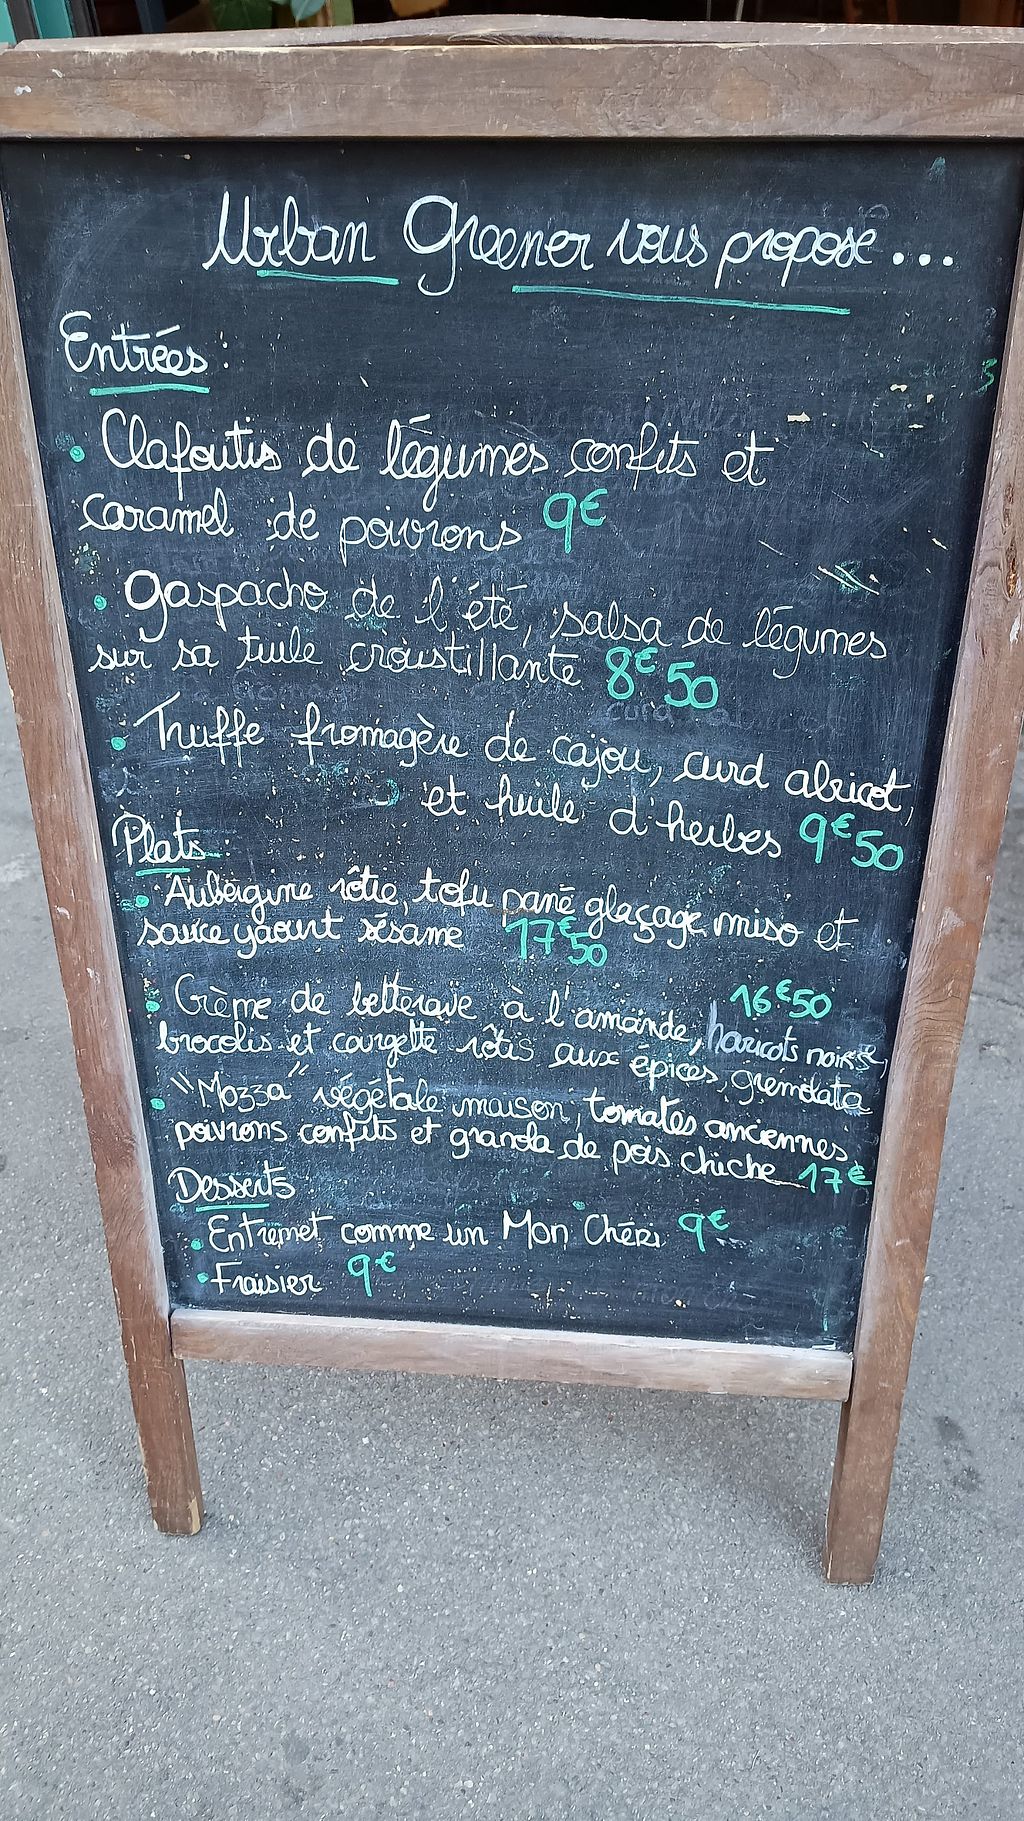 Urban Greener vous propose...
Entrées :
• Clafoutis de légumes confits et
caramel de poivrons 9€
• Gaspacho de l'été, salsa de légumes
sur sa tuile croustillante 8€50
• Truffe fromagère de cajou, curd abricot,
et huile d'herbes 9€50
Plats :
• Aubergine rôtie, tofu pané glaçage miso et
sauce yaourt sésame 17€50
• Crème de betterave à l'amande, haricots noirs, 16€50
brocolis et courgette rôtis aux épices, gremolata
• "Mozza" végétale maison, tomates anciennes,
poivrons confits et granola de pois chiche 17€
Desserts
• Entremet comme un Mon Chéri 9€
• Fraisier 9€